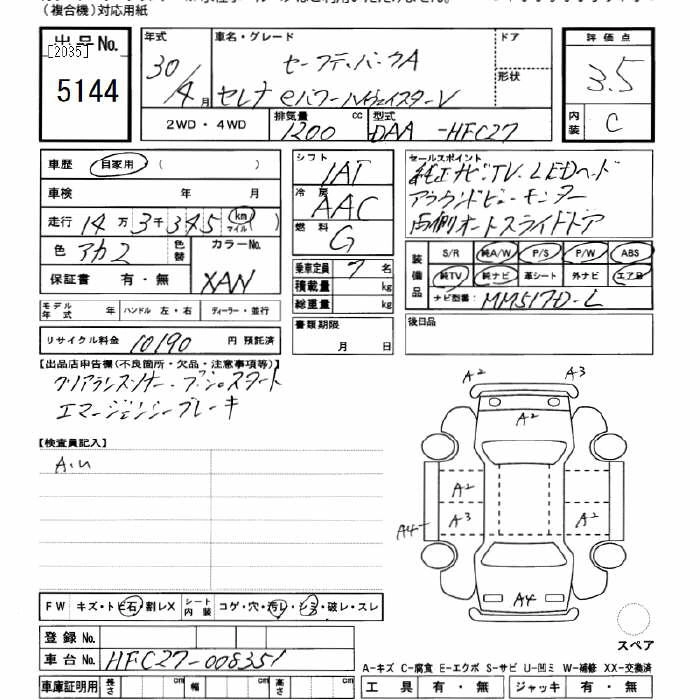 (複合機)対応用紙
出品No.
[2035]
5144
年式 30/4月
車名・グレード セーフティパックA
セレナ eパワーハイウェイスターV
ドア
形状
2WD・4WD
排気量 1200 cc
型式 DAA-HFC27
評価点
3.5
内装 C
車歴 自家用 ( )
車検 年 月
走行 14万3千345 (km マイル)
色 アカ2 色替
カラーNo. XAN
保証書 有・無
シフト IAT
冷房 AAC
燃料 G
乗車定員 7名
積載量 kg
総重量 kg
セールスポイント
純正ナビ・TV・LEDヘッド
アラウンドビューモニター
両側オートスライドドア
装備品
S/R 純A/W P/S P/W ABS
純TV 純ナビ 革シート 外ナビ エアB
ナビ型番: MM517D-L
モデル年式 年 ハンドル 左・右 ディーラー・並行
書類期限 月 日
後日品
リサイクル料金 10190 円 預託済
【出品店申告欄(不良箇所・欠品・注意事項等)】
クリアランスソナー・プッシュスタート
エマージェンシーブレーキ
【検査員記入】
A.U
A2 A3
A2
A2 A2
A4 A3 A2
A4
スペア
FW キズ・トビ石・割レX シート内装 コゲ・穴・汚レ・シミ・破レ・スレ
登録No.
車台No. HFC27-008351
A-キズ C-腐食 E-エクボ S-サビ U-凹ミ W-補修 XX-交換済
車庫証明用 長さ cm 幅 cm 高さ cm
工具 有・無 ジャッキ 有・無